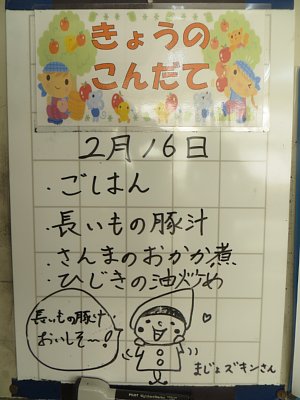 きょうの
こんだて
2月16日
・ごはん
長いもの豚汁
・さんまのおかか煮
・ひじきの油炒め
長いもの豚汁
おいしそ〜!
まじょズキンさん